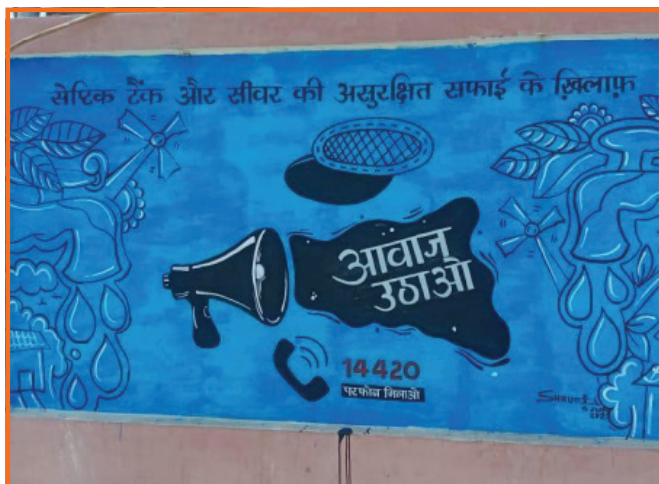 सेप्टिक टैंक और सीवर की असुरक्षित सफाई के ख़िलाफ़
आवाज़
उठाओ
14420
पर फोन मिलाओ